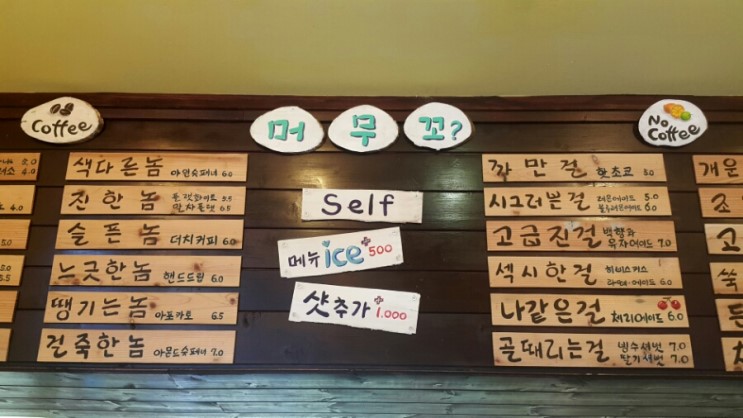 Coffee
머무꼬?
No Coffee
색다른놈 아인슈페너 6.0
진한놈 플랫화이트 5.5
말차플랫 6.5
슬픈놈 더치커피 6.0
느긋한놈 핸드드립 6.0
땡기는놈 아포카토 6.5
걸쭉한놈 아몬드슈페너 7.0
Self
메뉴 ice +500
샷추가 +1.000
까만걸 핫초코 5.0
시그러븐걸 레몬에이드 5.0
블루레몬에이드 6.0
고급진걸 백향과
유자에이드 7.0
섹시한걸 히비스커스
에이드 6.0
나같은걸 체리에이드 6.0
골때리는걸 빙수세번 7.0
딸기세번 7.0
개운
조
고
쑥
든